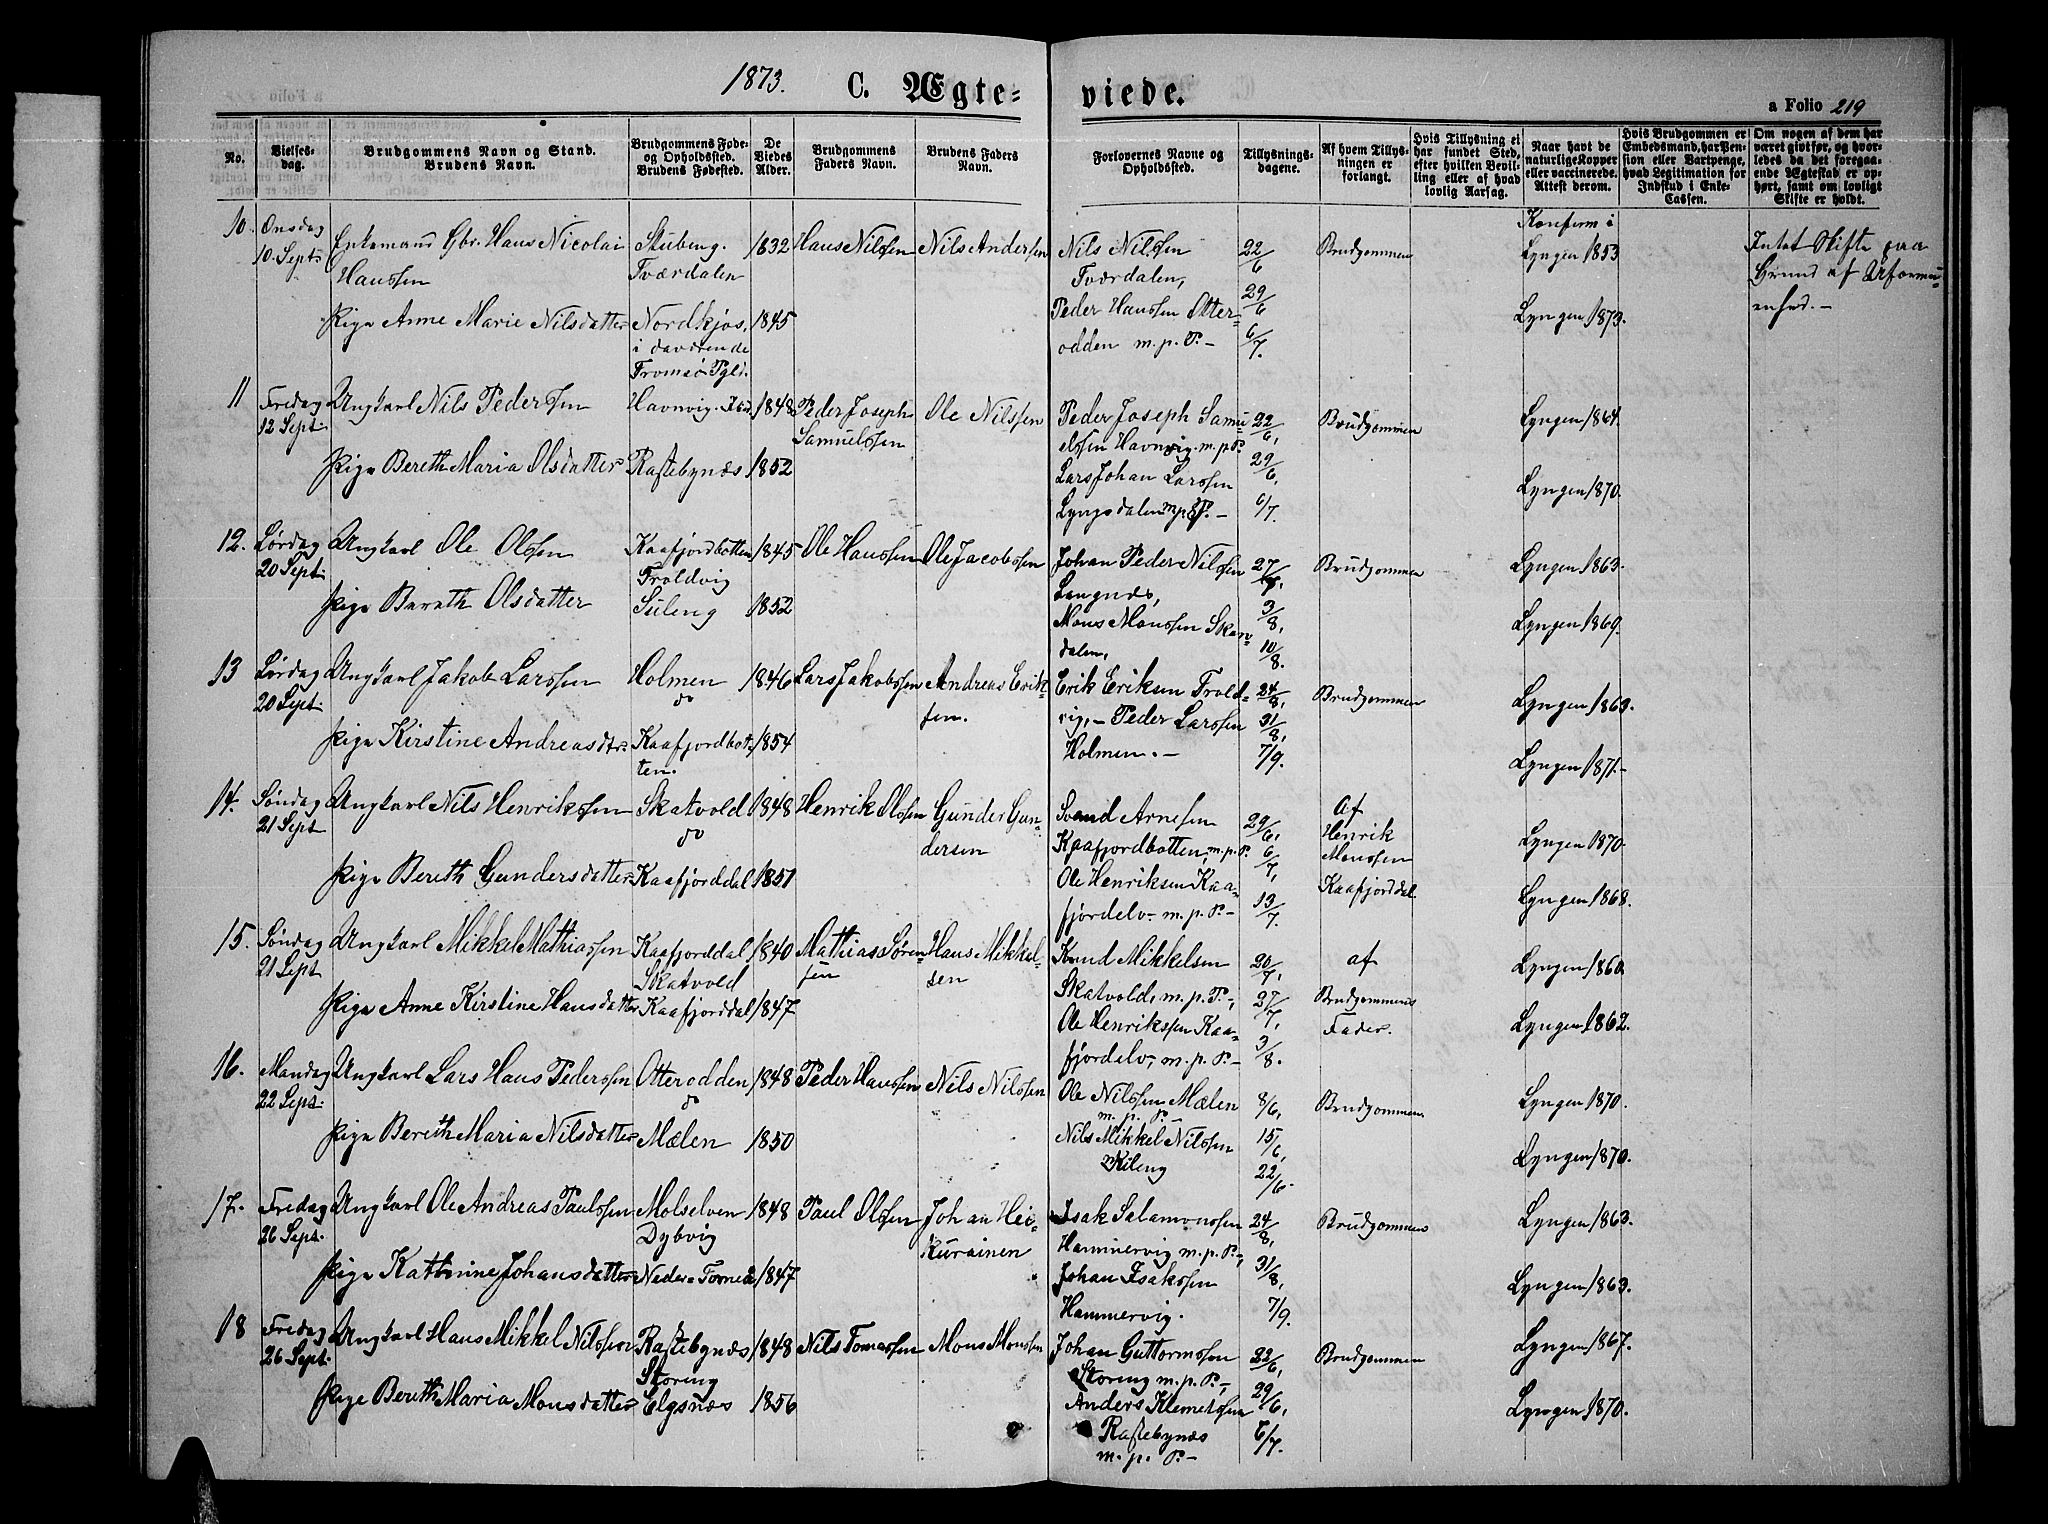 1873. C. Ægte= viede.
a Folio 219
No.
Vielses-
dag.
Brudgommens Navn og Stand.
Brudens Navn.
Brudgommens Føde-
og Opholdssted.
Brudens Fødested.
De
Viedes
Alder.
Brudgommens
Faders Navn.
Brudens Faders
Navn.
Forlovernes Navne og
Opholdssted.
Tillysnings-
dagene.
Af hvem Tillys-
ningen er
forlangt.
Hvis Tillysning ei
har fundet Sted,
efter hvilken Bevil-
ling eller af hvad
lovlig Aarsag.
Naar havt de
naturlige Kopper
eller vaccinerede.
Attest derom.
Hvis Brudgommen er
Embedsmand, har Pen-
sion eller Vartpenge,
hvad Legitimation for
Indskud i Enke-
Cassen.
Om nogen af dem har
været givt før, og hvor-
ledes da det foregaa-
ende Ægteskab er op-
hørt, samt om lovligt
Skifte er holdt.
10. Onsdag
10. Septr
Enkemand Gbr. Hans Nicolai
Hanssen
Pige Anne Marie Nilsdatter
Skibeng.
Tværdalen
Nordkjos,
i daværende
Tromsø Pgld.
1832
1845
Hans Nilssen
Nils Anderssen
Nils Nilssen
Tværdalen,
Peder Hanssen Otter-
odden m. p. P. -
22/6
29/6
6/7.
Brudgommen
Konfirm i
Lyngen 1853
Lyngen 1873.
Intet Skifte paa
Grund af Uformu-
enhed. -
11
Fredag
12 Sept.
Ungkarl Nils Pederssen
Pige Bereth Maria Olsdatter
Havnvig. Ibid.
Rastebynæs
1848
1852
Peder Joseph
Samuelssen
Ole Nilssen
Peder Joseph Samu-
elssen Havnvig. m. p. P.
Lars Johan Larssen
Lyngsdalen m. p. P. -
22/6,
29/6,
6/7.
Brudgommen
Lyngen 1864.
Lyngen 1870.
12.
Lørdag
20 Sept.
Ungkarl Ole Olssen
Pige Barath Olsdatter
Kaafjordbotten
Troldvig
Sileng
1845
1852
Ole Hanssen
Ole Jacobssen
Johan Peder Nilssen
Langnæs,
Mons Monssen Skar-
dalen,
27/7,
3/8,
10/8.
Brudgommen
Lyngen 1863.
Lyngen 1869.
13
Lørdag
20 Sept.
Ungkarl Jakob Larssen
Pige Kirstine Andreasdtr.
Holmen
do
Kaafjordbot-
ten.
1846
1854
Lars Jakobssen
Andreas Erik-
sen.
Erik Eriksen Trold-
vig, - Peder Larssen
Holmen. -
24/8,
31/8,
7/9.
Brudgommen
Lyngen 1863.
Lyngen 1871.-
14.
Søndag
21 Sept
Ungkarl Nils Henrikssen
Pige Bereth Gundersdatter
Skatvold
do
Kaafjorddal
1848
1851
Henrik Olssen
Gunder Gun-
dersen
Svend Arnesen
Kaafjordbotten, m. p. P.
Ole Henriksen Kaa-
fjordelv- m. p. P. -
29/6,
6/7,
13/7.
Af
Henrik
Monssen
Kaafjorddal.
Lyngen 1870
Lyngen 1868.
15.
Søndag
21 Sept
Ungkarl Mikkel Mathiassen
Pige Anne Kirstine Hansdatter
Kaafjorddal
Skatvold
Kaafjorddal
1840
1847
Mathias Søren-
sen
Hans Mikkel-
sen
Knud Mikkelsen
Skatvold, m. p. P. -,
Ole Henrikssen Kaa-
fjordelv-, m. p. P. -
20/7,
27/7,
3/8.
af
Brudgommens
Fader.
Lyngen 1860
Lyngen 1862.
16.
Mandag
22 Sept.
Ungkarl Lars Hans Pederssen
Pige Bereth Maria Nilsdatter
Otterodden
do
Mælen
1848
1850
Peder Hanssen
Nils Nilssen
Ole Nilssen Mælen
m. p. P. -
Nils Mikkel Nilssen
Kileng
8/6,
15/6,
22/6.
Brudgommen
Lyngen 1870.
Lyngen 1870.
17.
Fredag
26 Sept.
Ungkarl Ole Andreas Paulssen
Pige Kathrine Johansdatter
Molselven
Dybvig
Neder-Torneå
1848
1847
Paul Olssen
Johan Hei-
kurainen
Isak Salamonssen
Hammervig m. p. P. -,
Johan Isakssen
Hammervig.
24/8,
31/8,
7/9.
Brudgommen
Lyngen 1863.
Lyngen 1863.
18
Fredag
26 Sept.
Ungkarl Hans Mikkel Nilssen
Pige Bereth Maria Monsdatter
Rastebynæs
Storeng
Elgsnæs
1848
1856
Nils Tomassen
Mons Monssen
Johan Guttormssen
Storeng m. p. P. -,
Anders Klemetssen
Rastebynæs
m. p. P. -
22/6,
29/6,
6/7.
Brudgommen
Lyngen 1867.
Lyngen 1870.